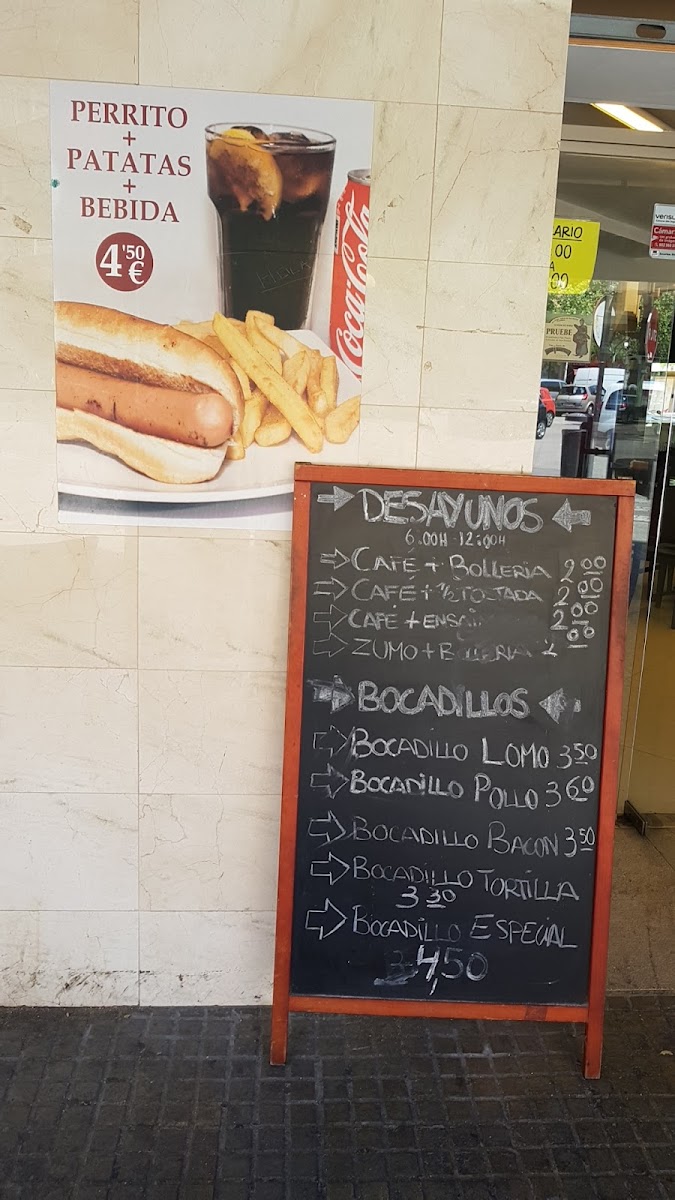 PERRITO
+
PATATAS
+
BEBIDA
4'50
€
Coca-Cola
ARIO
00
A
00
PRUEBE
DESAYUNOS
6:00H - 12:00H
CAFÉ + BOLLERIA 2,00
CAFÉ + 1/2 TOSTADA 2,00
CAFÉ + 2,00
ZUMO + BOLLERIA 2,00
BOCADILLOS
BOCADILLO LOMO 3,50
BOCADILLO POLLO 3,60
BOCADILLO BACON 3,50
BOCADILLO TORTILLA
3,30
BOCADILLO ESPECIAL
4,50